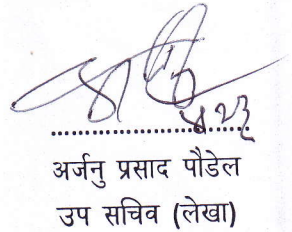 अर्जनु प्रसाद पौडेल
उप सचिव (लेखा)